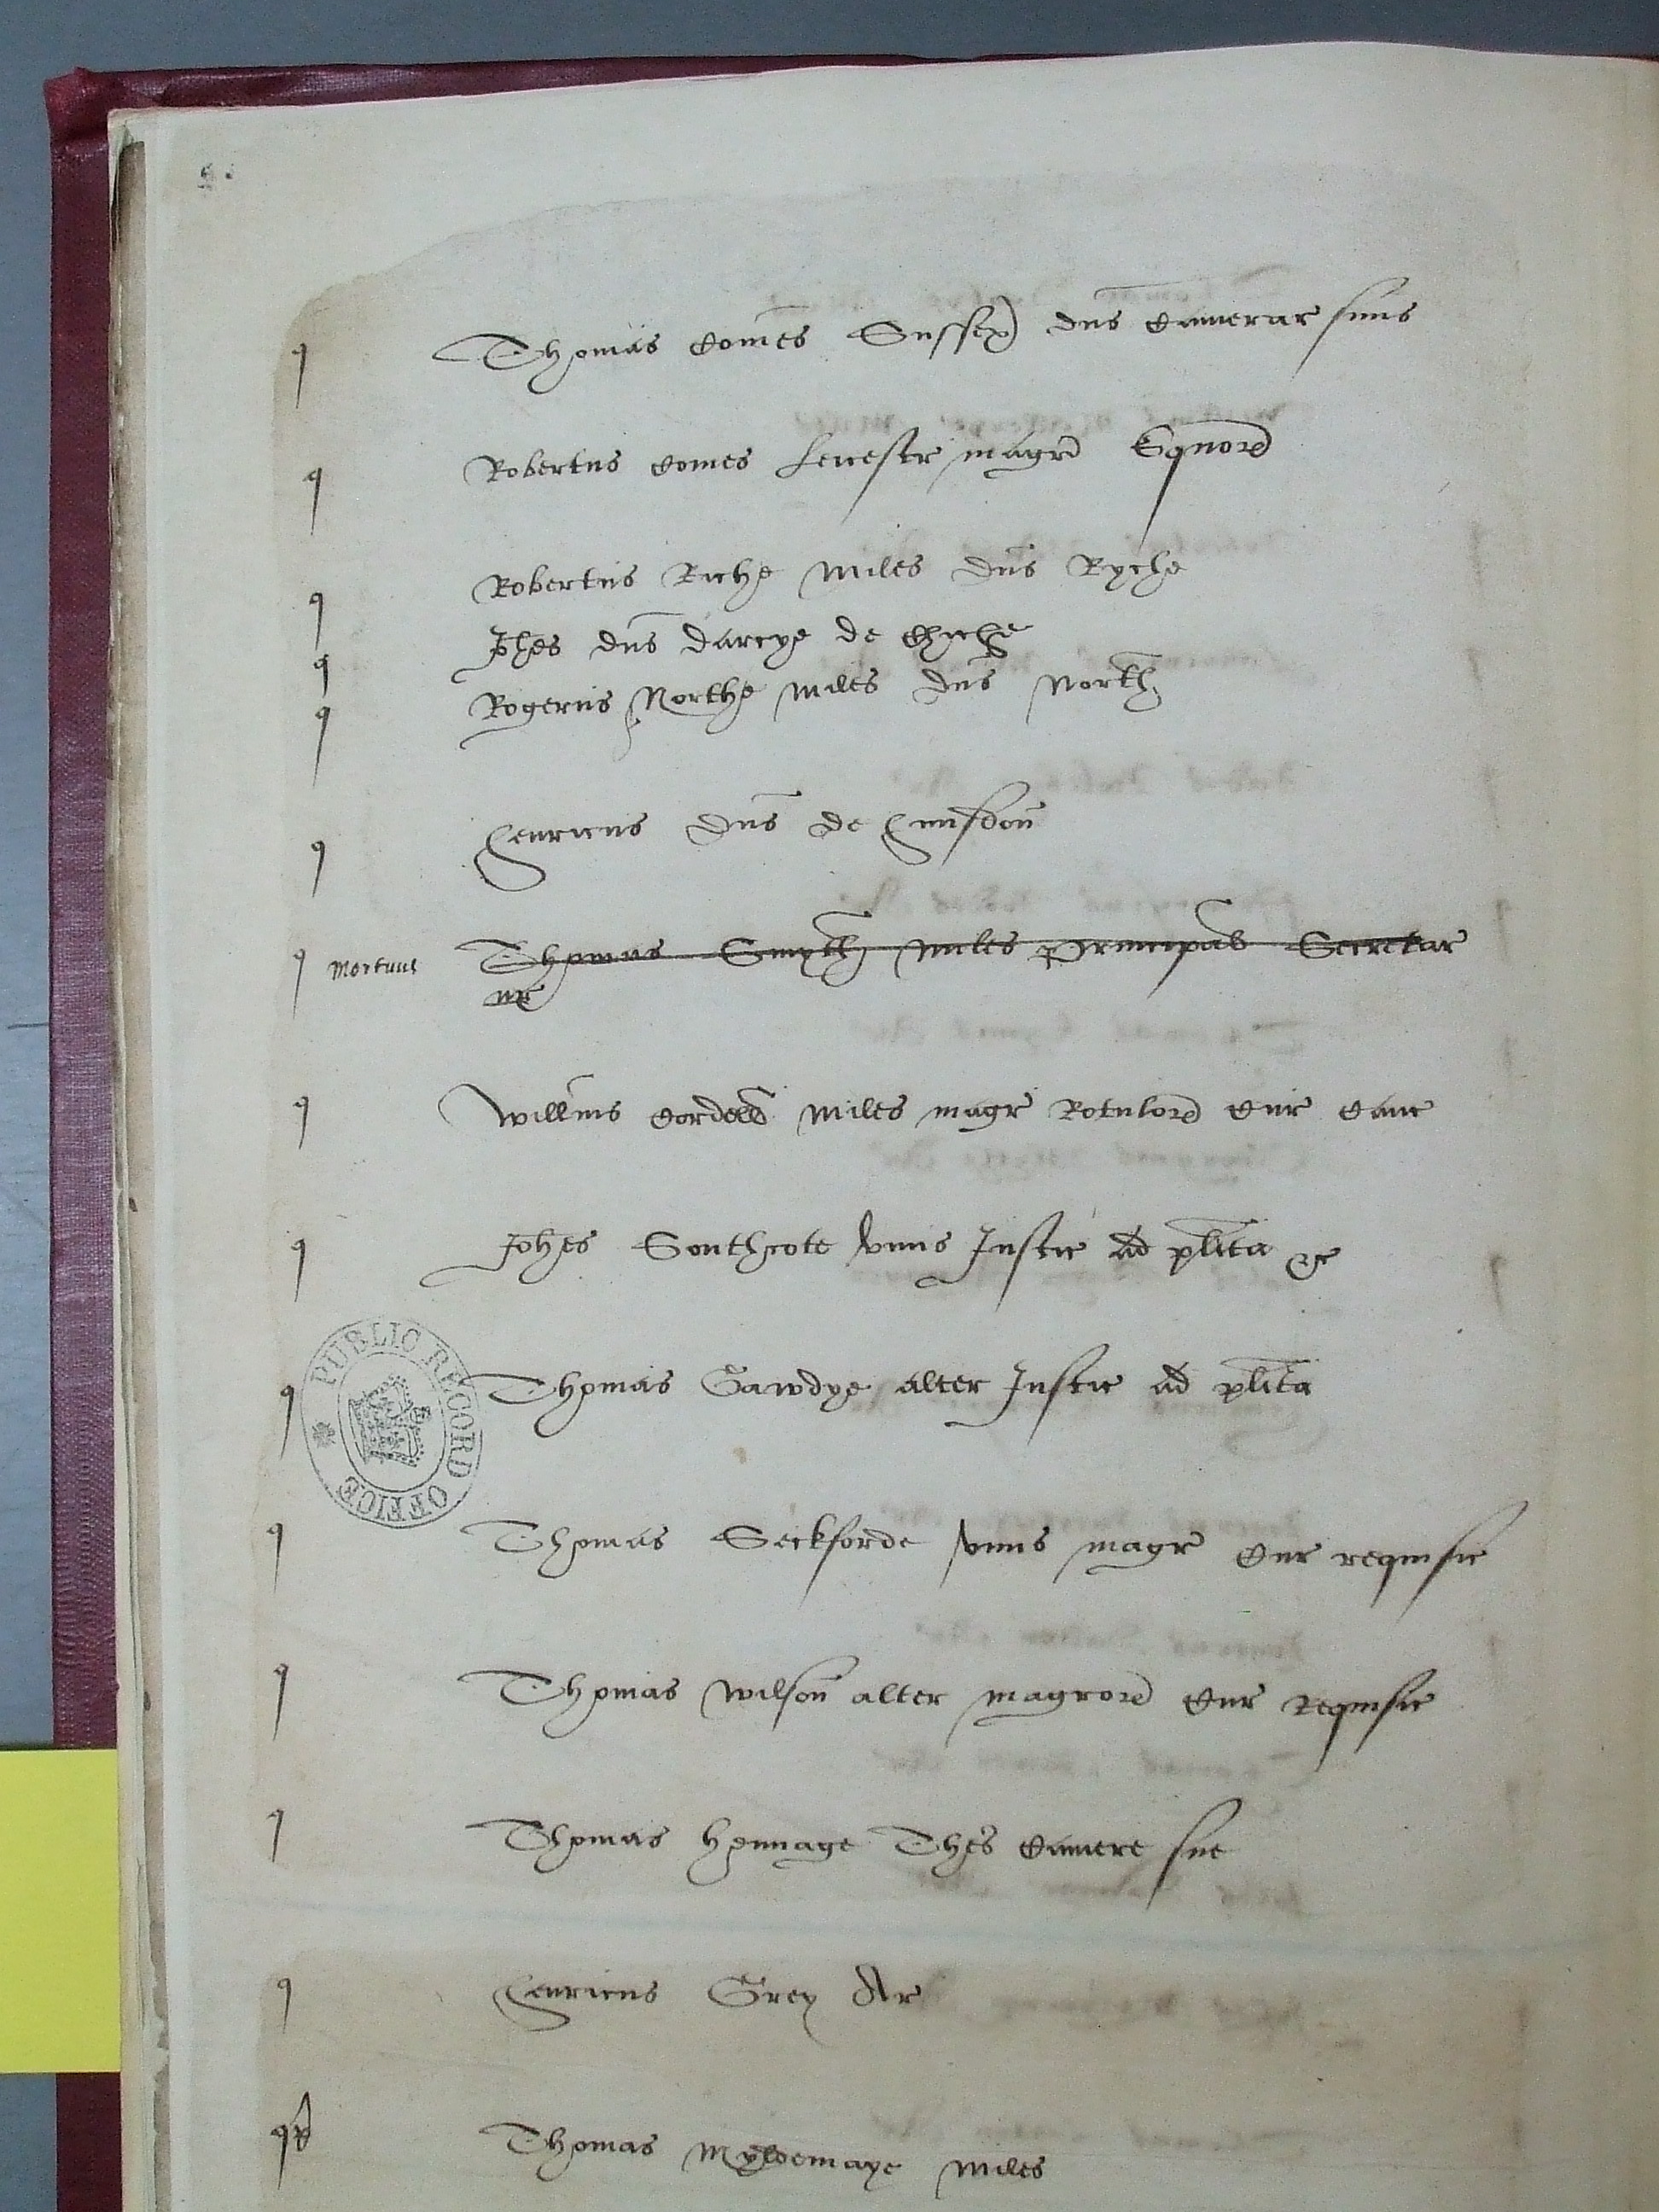 q Thomas Comes Sussex dns Camerar suus
q Robertus Comes Leicestr magr Equor
q Robertus Riche Miles dns Ryche
q Johes dns darcye de Chiche
q Rogerus Northe Miles dns North
q Henricus dns de Hunsdon
q Mortuus Thomas Smyth Miles Principal Secretar
nr
q Willms Cordell Miles magr Rotulor Cur Canc
q Johes Southcote vnus Justic ad plita &c
q Thomas Gawdye alter Justic ad plita
PUBLIC RECORD OFFICE
q Thomas Seckforde vnus magr Cur requisic
q Thomas Wilson alter magror Cur Requisic
q Thomas Hennage Thes Camere sue
q Henricus Grey Ar
Thomas Myldemaye Miles